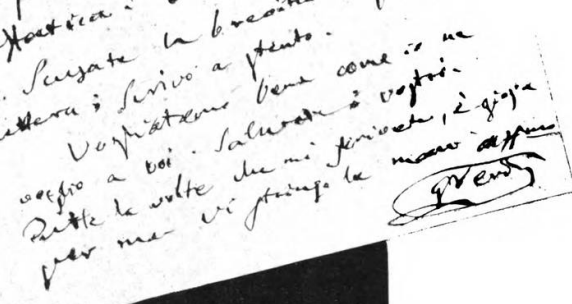 Scusate la brevità
lettera; scrivo a stento.
Vogliatemi bene come io ne
voglio a voi. Salutate i vostri.
Tutte le volte che mi scrivete, è gioja
per me. Vi stringo la mano aff
GVerdi